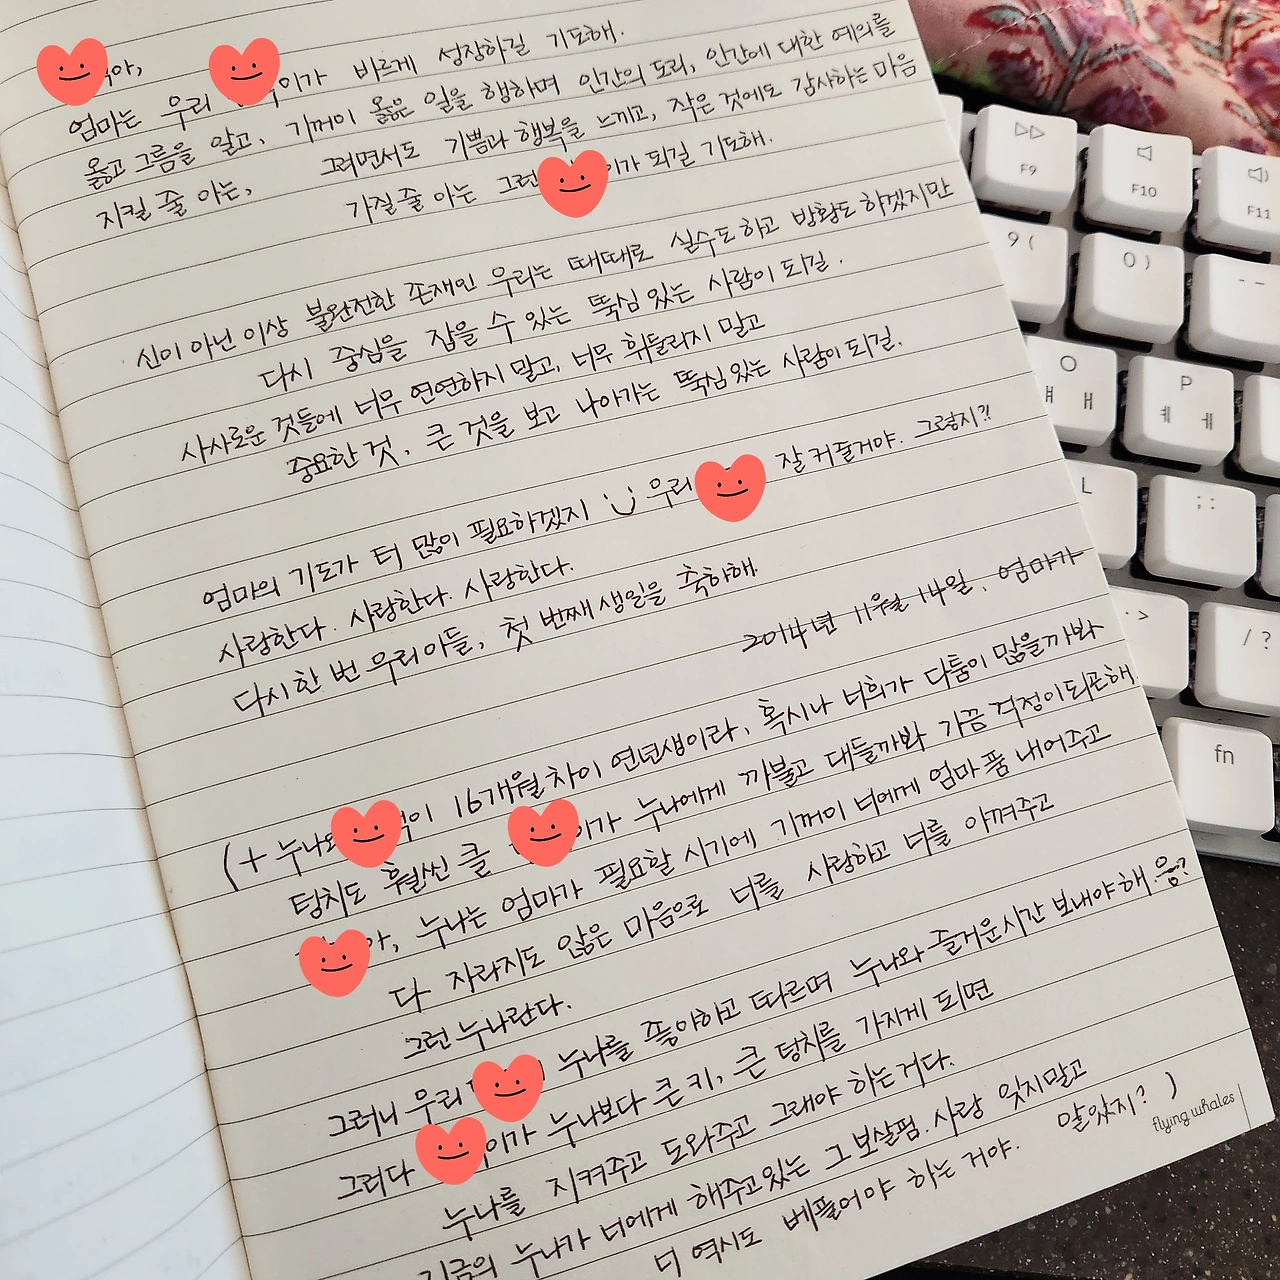 아,
엄마는 우리 이가 바르게 성장하길 기도해.
옳고 그름을 알고, 기꺼이 옳은 일을 행하며 인간의 도리, 인간에 대한 예의를
지킬 줄 아는, 그러면서도 기쁨과 행복을 느끼고, 작은 것에도 감사하는 마음
가질 줄 아는 그런 이가 되길 기도해.
신이 아닌 이상 불완전한 존재인 우리는 때때로 실수도 하고 방황도 하겠지만
다시 중심을 잡을 수 있는 뚝심 있는 사람이 되길.
사사로운 것들에 너무 연연하지 말고, 너무 휘둘리지 말고
중요한 것, 큰 것을 보고 나아가는 뚝심 있는 사람이 되길.
엄마의 기도가 더 많이 필요하겠지 :) 우리 잘 커줄거야. 그렇지?!
사랑한다. 사랑한다. 사랑한다.
다시 한 번 우리 아들, 첫 번째 생일을 축하해
2014년 11월 14일. 엄마가
(+ 누나와 이 16개월 차이 연년생이라, 혹시나 너희가 다툼이 많을까봐
덩치도 훨씬 클 이가 누나에게 까불고 대들까봐 가끔 걱정이 되곤해.
아, 누나는 엄마가 필요할 시기에 기꺼이 너에게 엄마 품 내어주고
다 자라지도 않은 마음으로 너를 사랑하고 너를 아껴주고
그런 누나란다.
그러니 우리 누나를 좋아하고 따르며 누나와 즐거운 시간 보내야 해. 응?
그러다 이가 누나보다 큰 키, 큰 덩치를 가지게 되면
누나를 지켜주고 도와주고 그래야 하는거다.
지금의 누나가 너에게 해주고 있는 그 보살핌. 사랑 잊지말고
너 역시도 베풀어야 하는 거야. 알았지? )
flying whales
▷▷
F9
F10
F11
9 (
0 )
- -
O
ㅐ ㅒ
P
ㅖ ㅔ
L
; :
. >
/ ?
fn